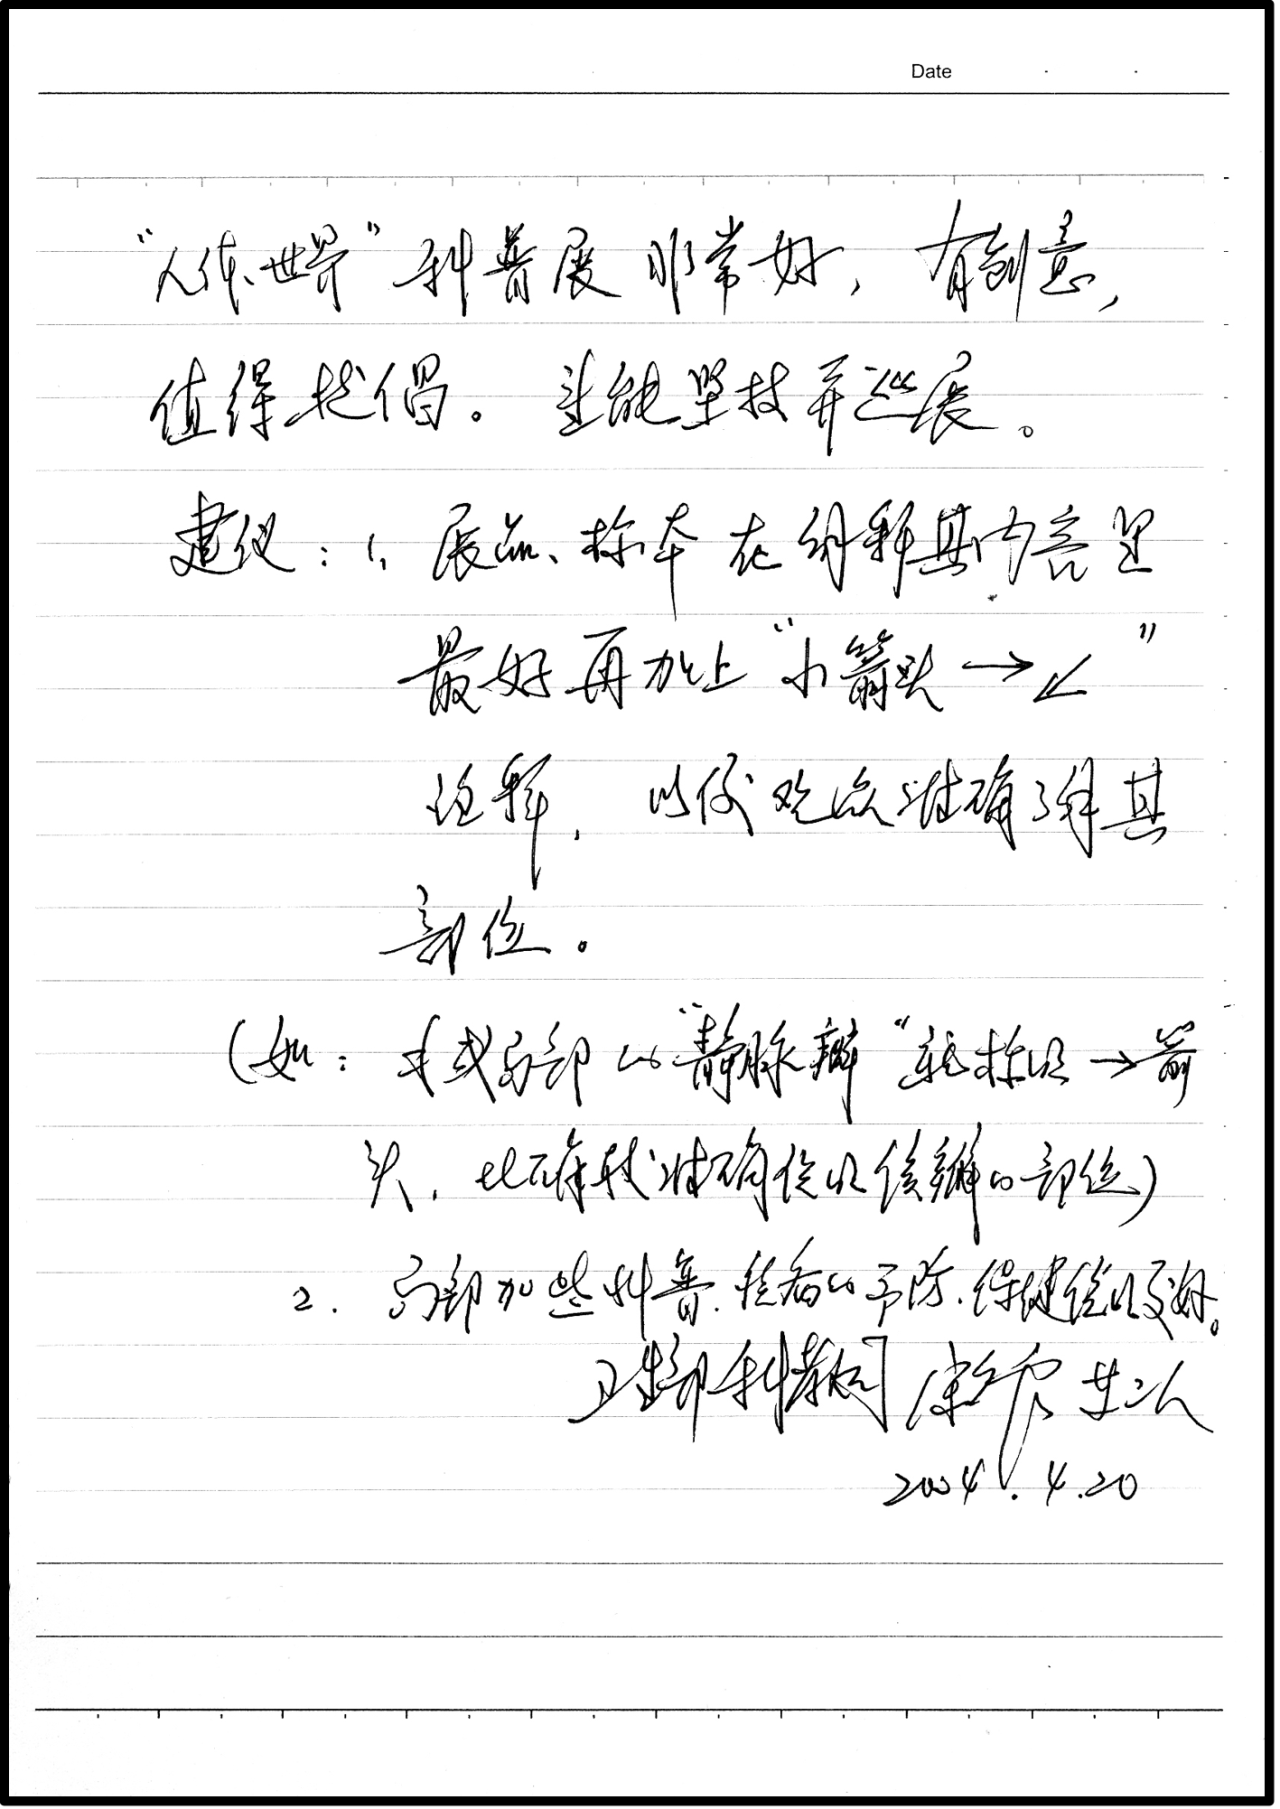 Date
“人体世界”科普展非常好，有创意，
值得提倡。望能坚持并巡展。
建议：1、展品、标本在解释其内容里
最好再加上“小箭头→↙”
注释，以便观众准确了解其
部位。
（如：局部的“静脉瓣”就标以→箭
头，比较准确位以该瓣的部位）
2. 局部加些科普.疾病的予防.保健位以更好。
卫生部科教司
2004.4.20